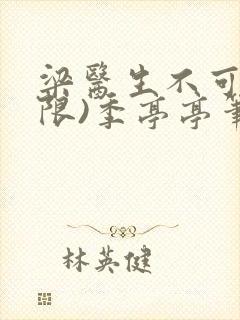 梁醫生不可
限)季亭亭筆
林英健